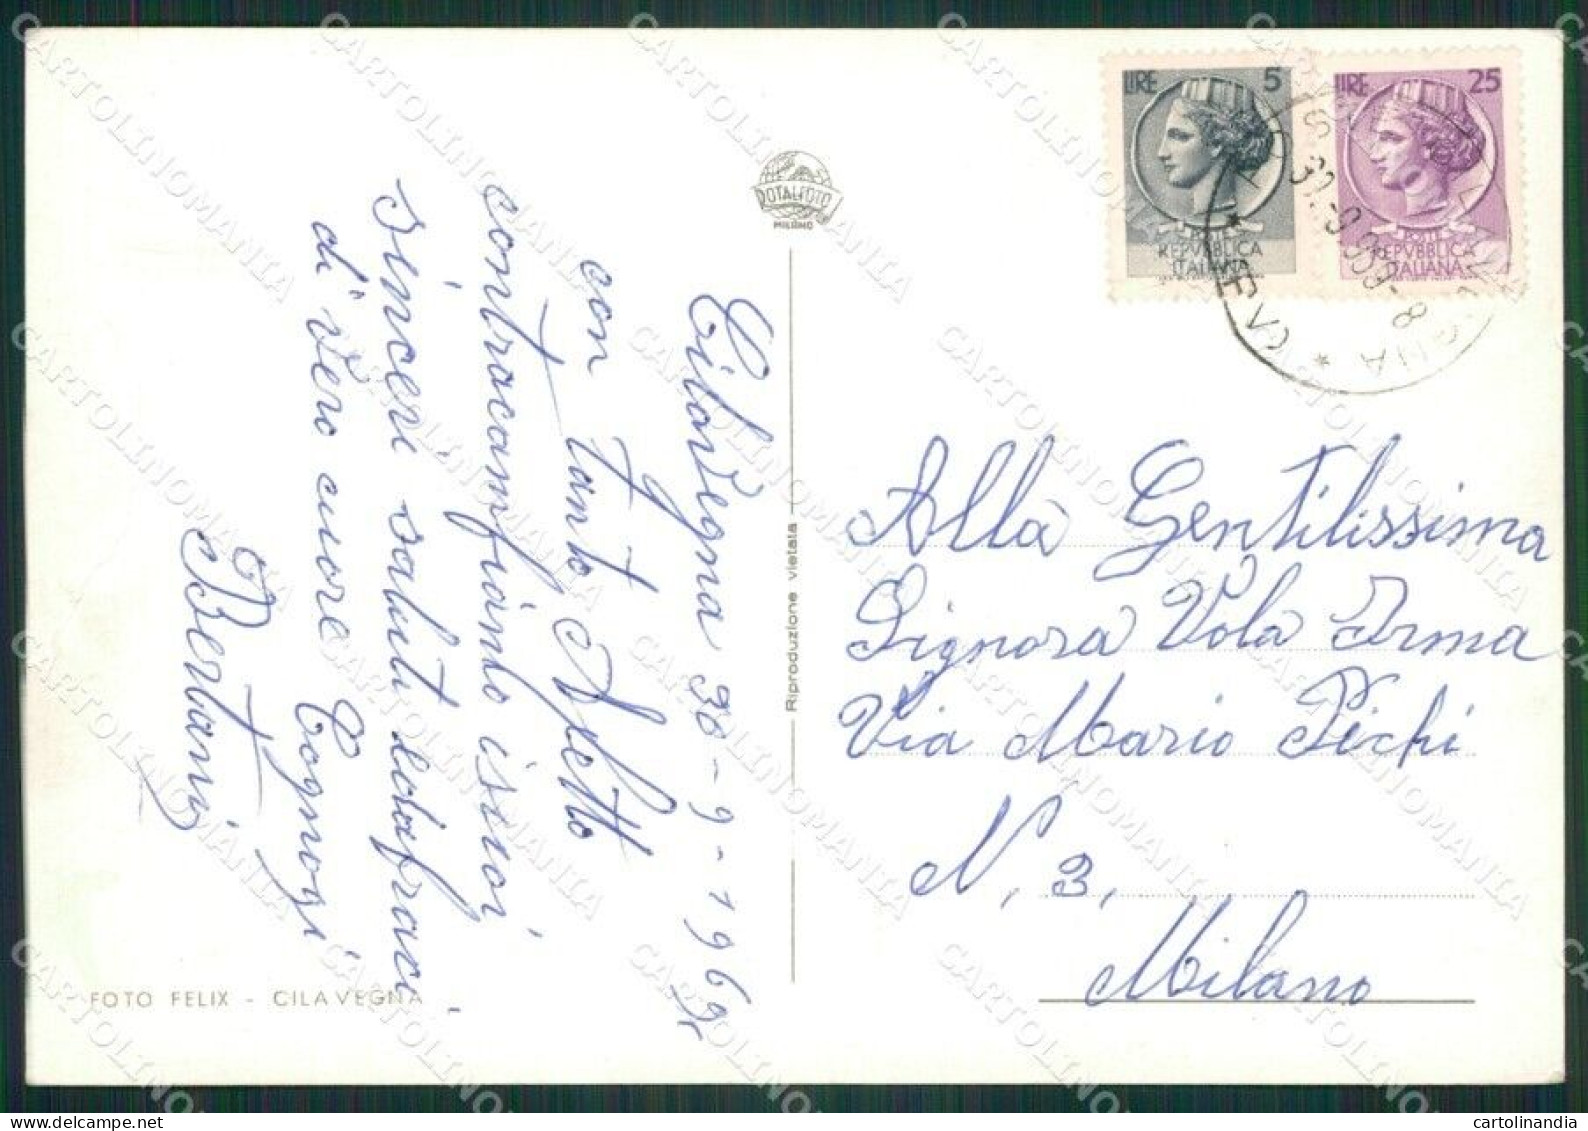 Cilavegna 30-9-1969
con tanto Affetto
contracambiando i suoi
sinceri saluti ed abracci
di vero cuore Cognozzi
Bertani
FOTO FELIX - CILAVEGNA
ROTALFOTO
MILANO
Riproduzione vietata
LIRE 5
POSTE
REPVBBLICA
ITALIANA
LIRE 25
POSTE
REPVBBLICA
ITALIANA
Alla Gentilissima
Signora Vola Irma
Via Mario Pichi
N, 3,
Milano
CARTOLINOMANIA
cartolinandia